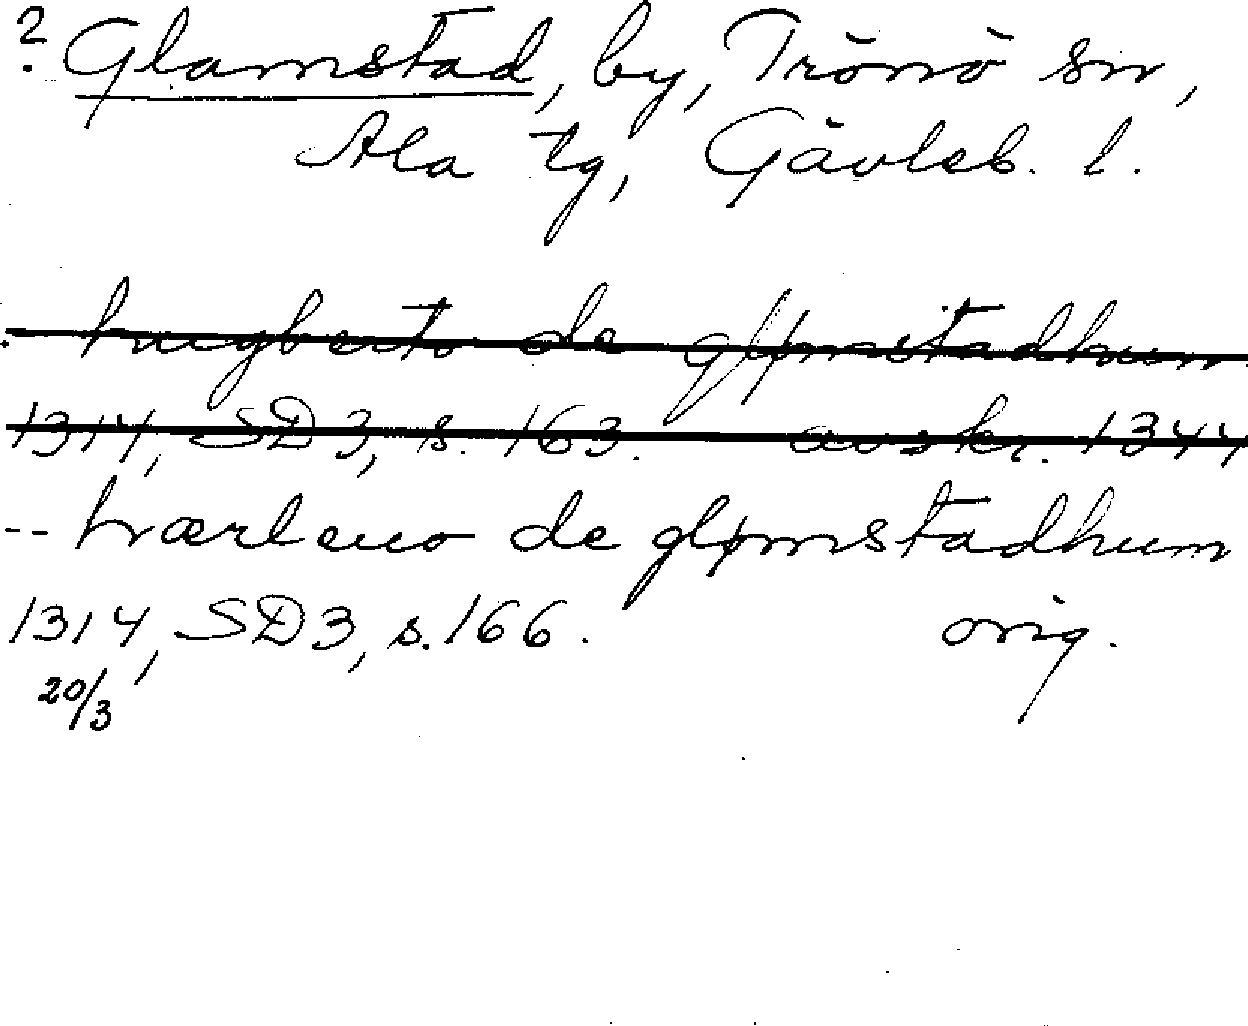 ? Glamstad, by, Trönö sn,
Ala tg, Gävleb. l.
de glømstadhum
1314, SD 3, s. 163. avskr. 1344
-- hværleuo de glømstadhum
1314, SD 3, s. 166. orig.
20/3